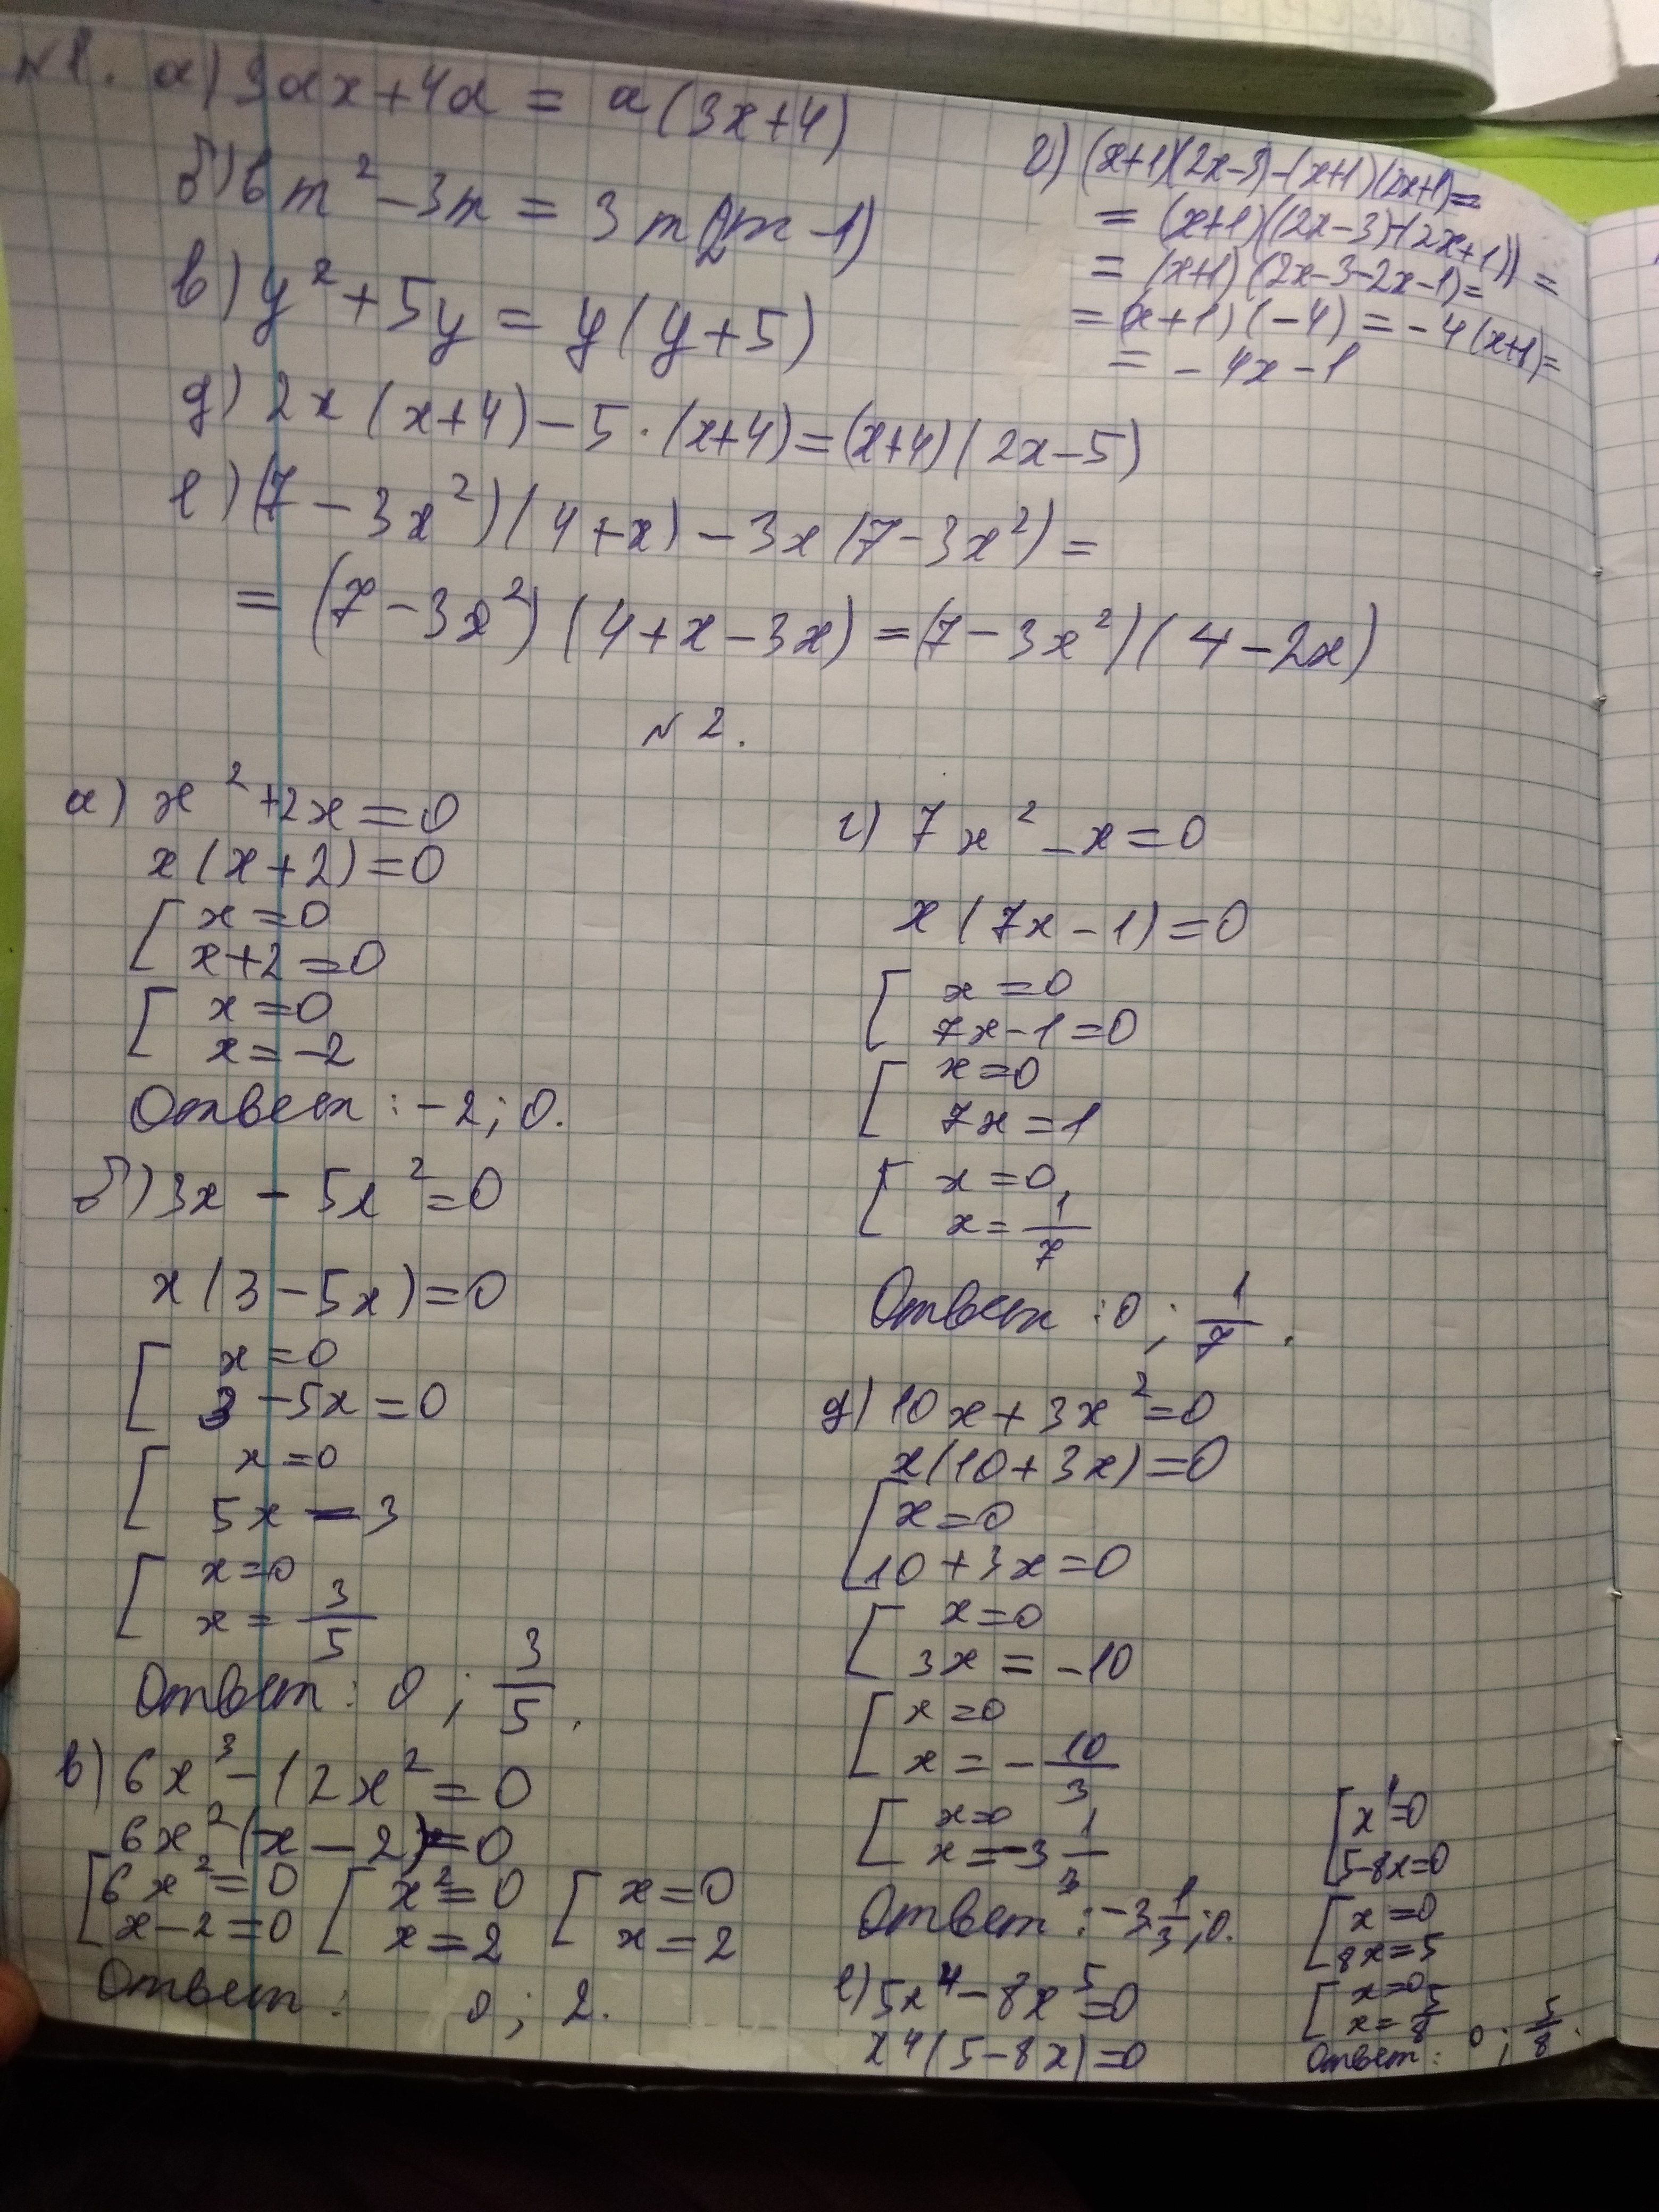 №1. а) 3ax+4a = a(3x+4)
б) 6m² -3m = 3m(2m-1)
в) y² + 5y = y(y+5)
г) (x+1)(2x-3)-(x+1)(2x+1)=
= (x+1)((2x-3)-(2x+1)) =
= (x+1)(2x-3-2x-1)=
= (x+1)(-4) = -4(x+1)=
= -4x-1
д) 2x(x+4)-5·(x+4)=(x+4)(2x-5)
е) (7-3x²)(4+x)-3x(7-3x²)=
= (7-3x²)(4+x-3x)=(7-3x²)(4-2x)
№2.
а) x²+2x=0
x(x+2)=0
[ x=0
x+2=0
[ x=0
x=-2
Ответ: -2; 0.
б) 3x - 5x²=0
x(3-5x)=0
[ x=0
3-5x=0
[ x=0
5x=3
[ x=0
x = 3/5
Ответ: 0; 3/5.
в) 6x³-12x²=0
6x²(x-2)=0
[ 6x²=0 [ x²=0 [ x=0
x-2=0 x=2 x=2
Ответ: 0; 2.
г) 7x²-x=0
x(7x-1)=0
[ x=0
7x-1=0
[ x=0
7x=1
[ x=0
x=1/7
Ответ: 0; 1/7.
д) 10x+3x²=0
x(10+3x)=0
[ x=0
10+3x=0
[ x=0
3x=-10
[ x=0
x=-10/3
[ x=0
x=-3 1/3
Ответ: -3 1/3; 0.
е) 5x⁴-8x⁵=0
x⁴(5-8x)=0
[ x⁴=0
5-8x=0
[ x=0
8x=5
[ x=0
x=5/8
Ответ: 0; 5/8.